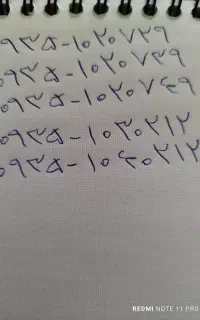 ۰۹۳۵-۱۰۲۰۷۲۹
۰۹۳۵-۱۰۲۰۷۳۹
۰۹۳۵-۱۰۲۰۷۴۹
۰۹۳۵-۱۰۳۰۲۱۲
۰۹۳۵-۱۰۴۰۲۱۲
REDMI NOTE 11 PRO